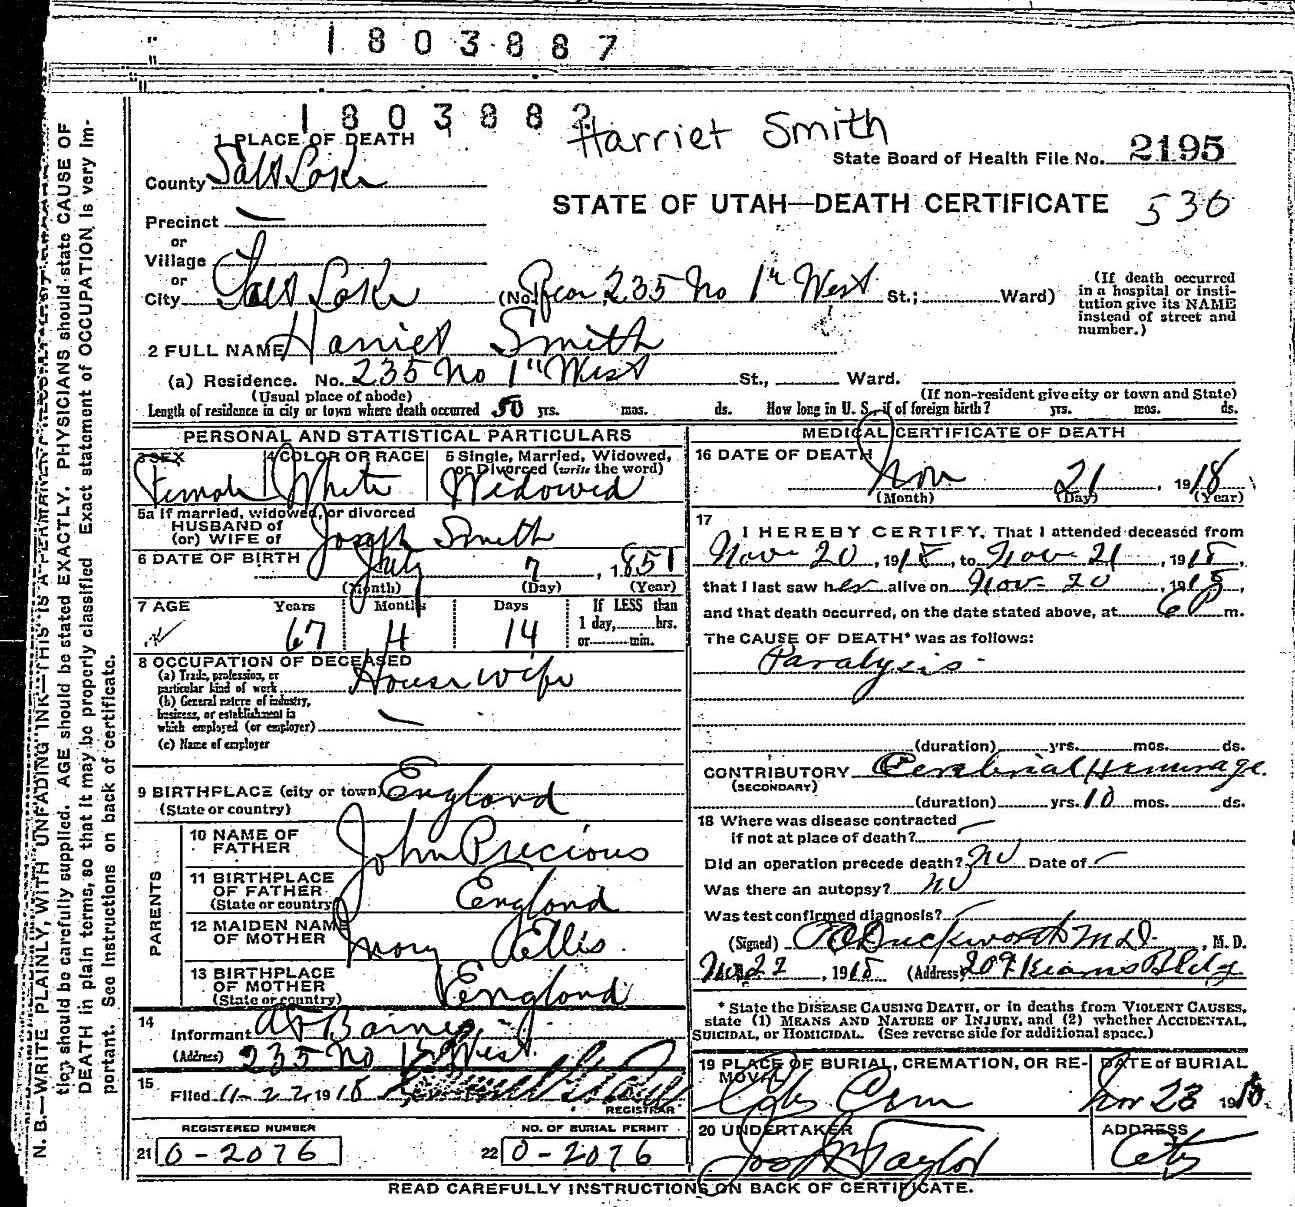 1803887
1803882
Harriet Smith
1 PLACE OF DEATH
State Board of Health File No. 2195
County Salt Lake
STATE OF UTAH—DEATH CERTIFICATE 530
Precinct —
or
Village
or
City Salt Lake (No. Rear 235 No 1st West St.; Ward)
(If death occurred in a hospital or institution give its NAME instead of street and number.)
2 FULL NAME Harriet Smith
(a) Residence. No. 235 No 1st West St., Ward.
(Usual place of abode) (If non-resident give city or town and State)
Length of residence in city or town where death occurred 50 yrs. mos. ds. How long in U. S., if of foreign birth? yrs. mos. ds.
PERSONAL AND STATISTICAL PARTICULARS
3 SEX Female
4 COLOR OR RACE White
5 Single, Married, Widowed, or Divorced (write the word) Widowed
5a If married, widowed, or divorced
HUSBAND of
(or) WIFE of Joseph Smith
6 DATE OF BIRTH July 7, 1851
(Month) (Day) (Year)
7 AGE Years Months Days If LESS than
67 4 14 1 day, hrs.
or min.
8 OCCUPATION OF DECEASED
(a) Trade, profession, or
particular kind of work Housewife
(b) General nature of industry,
business, or establishment in
which employed (or employer) —
(c) Name of employer
9 BIRTHPLACE (city or town) England
(State or country)
PARENTS
10 NAME OF FATHER John Precious
11 BIRTHPLACE OF FATHER (State or country) England
12 MAIDEN NAME OF MOTHER Mary Ellis.
13 BIRTHPLACE OF MOTHER (State or country) England
14 Informant Barnes
(Address) 235 No 1st West.
15 Filed 11-22, 1918
REGISTRAR
REGISTERED NUMBER NO. OF BURIAL PERMIT
21 0-2076 22 0-2076
MEDICAL CERTIFICATE OF DEATH
16 DATE OF DEATH Nov 21, 1918
(Month) (Day) (Year)
17 I HEREBY CERTIFY, That I attended deceased from
Nov 20, 1918, to Nov 21, 1918,
that I last saw her alive on Nov 20, 1918,
and that death occurred, on the date stated above, at 6 P m.
The CAUSE OF DEATH* was as follows:
Paralysis
(duration) yrs. mos. ds.
CONTRIBUTORY Cerebrial Hemorage
(SECONDARY)
(duration) yrs. 10 mos. ds.
18 Where was disease contracted
if not at place of death? —
Did an operation precede death? No Date of —
Was there an autopsy? No
Was test confirmed diagnosis?
(Signed) Duckworth MD, M. D.
Nov 22, 1918 (Address) 209 Kearns Bldg
* State the DISEASE CAUSING DEATH, or in deaths from VIOLENT CAUSES,
state (1) MEANS AND NATURE OF INJURY, and (2) whether ACCIDENTAL,
SUICIDAL, or HOMICIDAL. (See reverse side for additional space.)
19 PLACE OF BURIAL, CREMATION, OR REMOVAL City Cem
DATE of BURIAL Nov 23 1918
20 UNDERTAKER Jos Wm Taylor
ADDRESS City
READ CAREFULLY INSTRUCTIONS ON BACK OF CERTIFICATE.
N. B.—WRITE PLAINLY, WITH UNFADING INK—THIS IS A PERMANENT RECORD.
they should be carefully supplied. AGE should be stated EXACTLY. PHYSICIANS should state CAUSE OF
DEATH in plain terms, so that it may be properly classified Exact statement of OCCUPATION is very im-
portant. See Instructions on back of certificate.